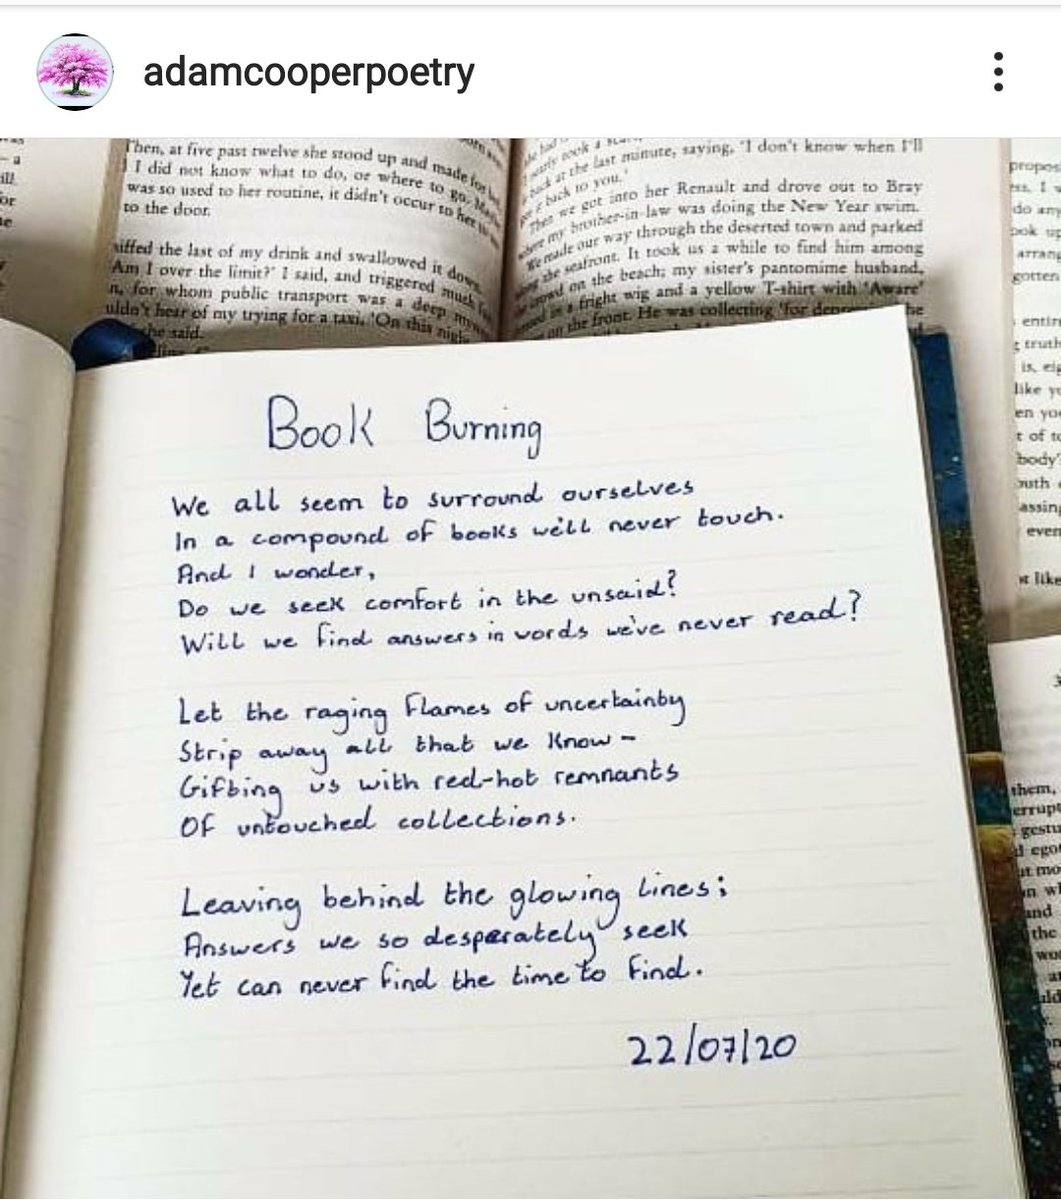 adamcooperpoetry
Then, at five past twelve she stood up and made for
I did not know what to do, or where to go.
was so used to her routine, it didn't occur to her to
to the door.
the last of my drink and swallowed it down.
Am I over the limit?' I said, and triggered much
for whom public transport was a deep
hear of my trying for a taxi, 'On this night
she said.
at the last minute, saying, 'I don't know when I'll
back to you.'
Then we got into her Renault and drove out to Bray
where my brother-in-law was doing the New Year swim.
We made our way through the deserted town and parked
the seafront. It took us a while to find him among
on the beach; my sister's pantomime husband,
in a fright wig and a yellow T-shirt with 'Aware'
on the front. He was collecting 'for
entire
truth
is,
like
en
of
body'
even
like
them,
and
the
Book Burning
We all seem to surround ourselves
In a compound of books we'll never touch.
And I wonder,
Do we seek comfort in the unsaid?
Will we find answers in words we've never read?
Let the raging flames of uncertainty
Strip away all that we know –
Gifting us with red-hot remnants
Of untouched collections.
Leaving behind the glowing lines;
Answers we so desperately seek
Yet can never find the time to find.
22/07/20